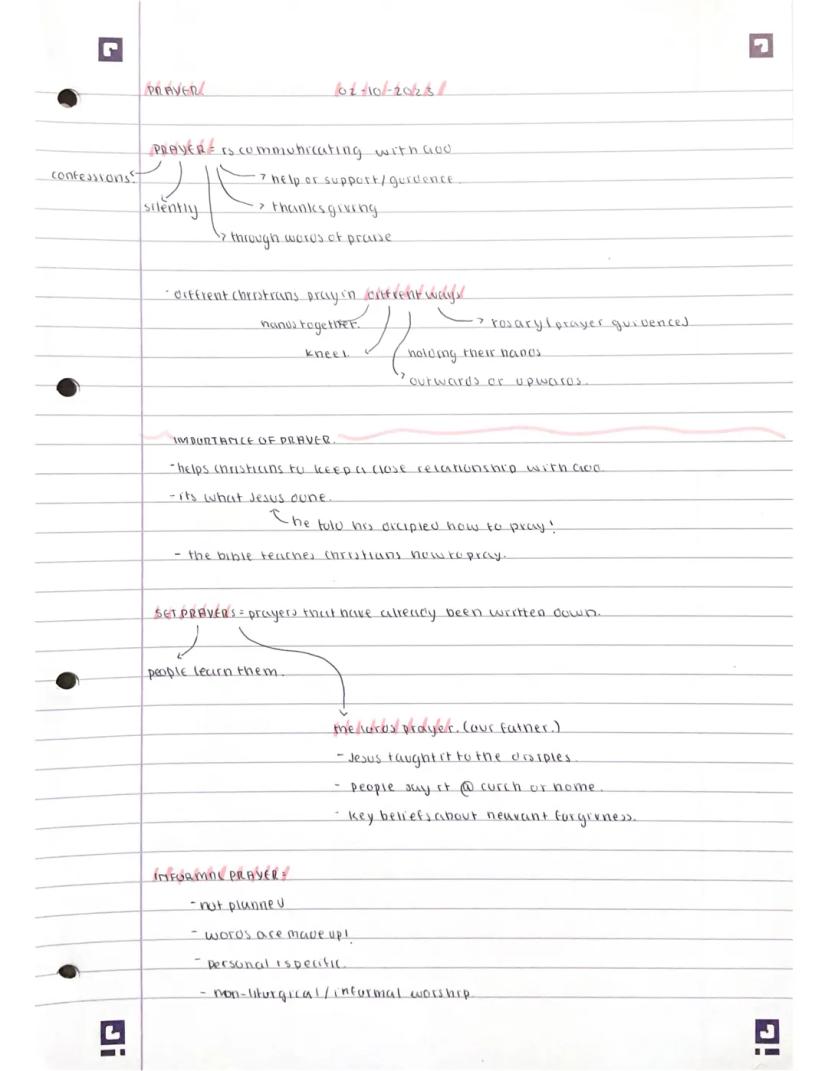 PRAYER 02-10-2023
PRAYER = is communicating with GOD
confessions.
> help or support/guidence.
silently
> thanksgiving
> through words of praise
- different christians pray in diffrent ways
hands together.
> rosary (prayer guidences)
kneel.
holding their hands
outwards or upwards.
IMPORTANCE OF PRAYER.
- helps christians to keep a close relationship with GOD.
- its what Jesus done.
he told his disipled how to pray!
- the bible teaches christians how to pray.
SET PRAYERS = prayers that have already been written down.
people learn them.
the lords prayer. (our father.)
- Jesus taught it to the disiples.
- people say it @ curch or home.
- key beliefs about heuvant forgivness.
INFORMAL PRAYER =
- not planned
- words are made up!
- personal & specific.
- non-liturgical/informal worship.